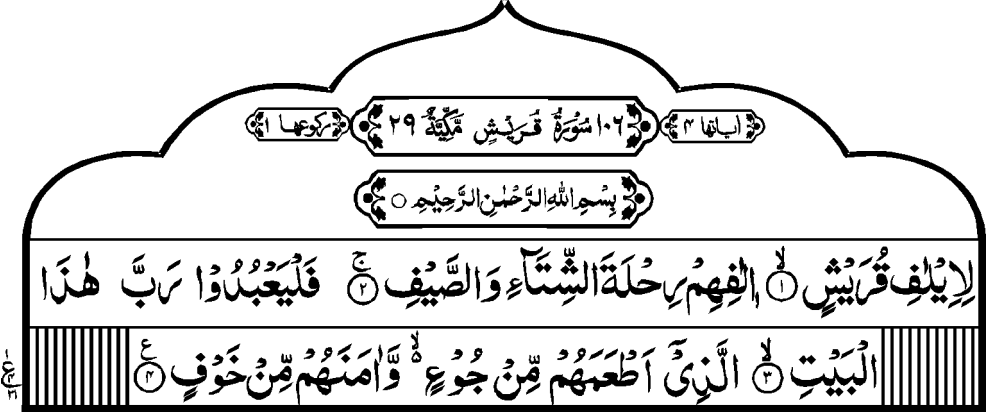 اياتها ۴ ١٠٦ سُوْرَةُ قُرَيْشٍ مَّكِّيَّةٌ ٢٩ ركوعها ١
بِسْمِ اللّٰهِ الرَّحْمٰنِ الرَّحِيْمِ ○
لِاِيْلٰفِ قُرَيْشٍ ۙ‏﴿۱﴾ اٖلٰفِهِمْ رِحْلَةَ الشِّتَآءِ وَالصَّيْفِ ۚ‏﴿۲﴾ فَلْيَعْبُدُوْا رَبَّ هٰذَا
الْبَيْتِ ۙ‏﴿۳﴾ الَّذِىْۤ اَطْعَمَهُمْ مِّنْ جُوْعٍ ۙ وَّاٰمَنَهُمْ مِّنْ خَوْفٍ ﴿۴﴾ ع